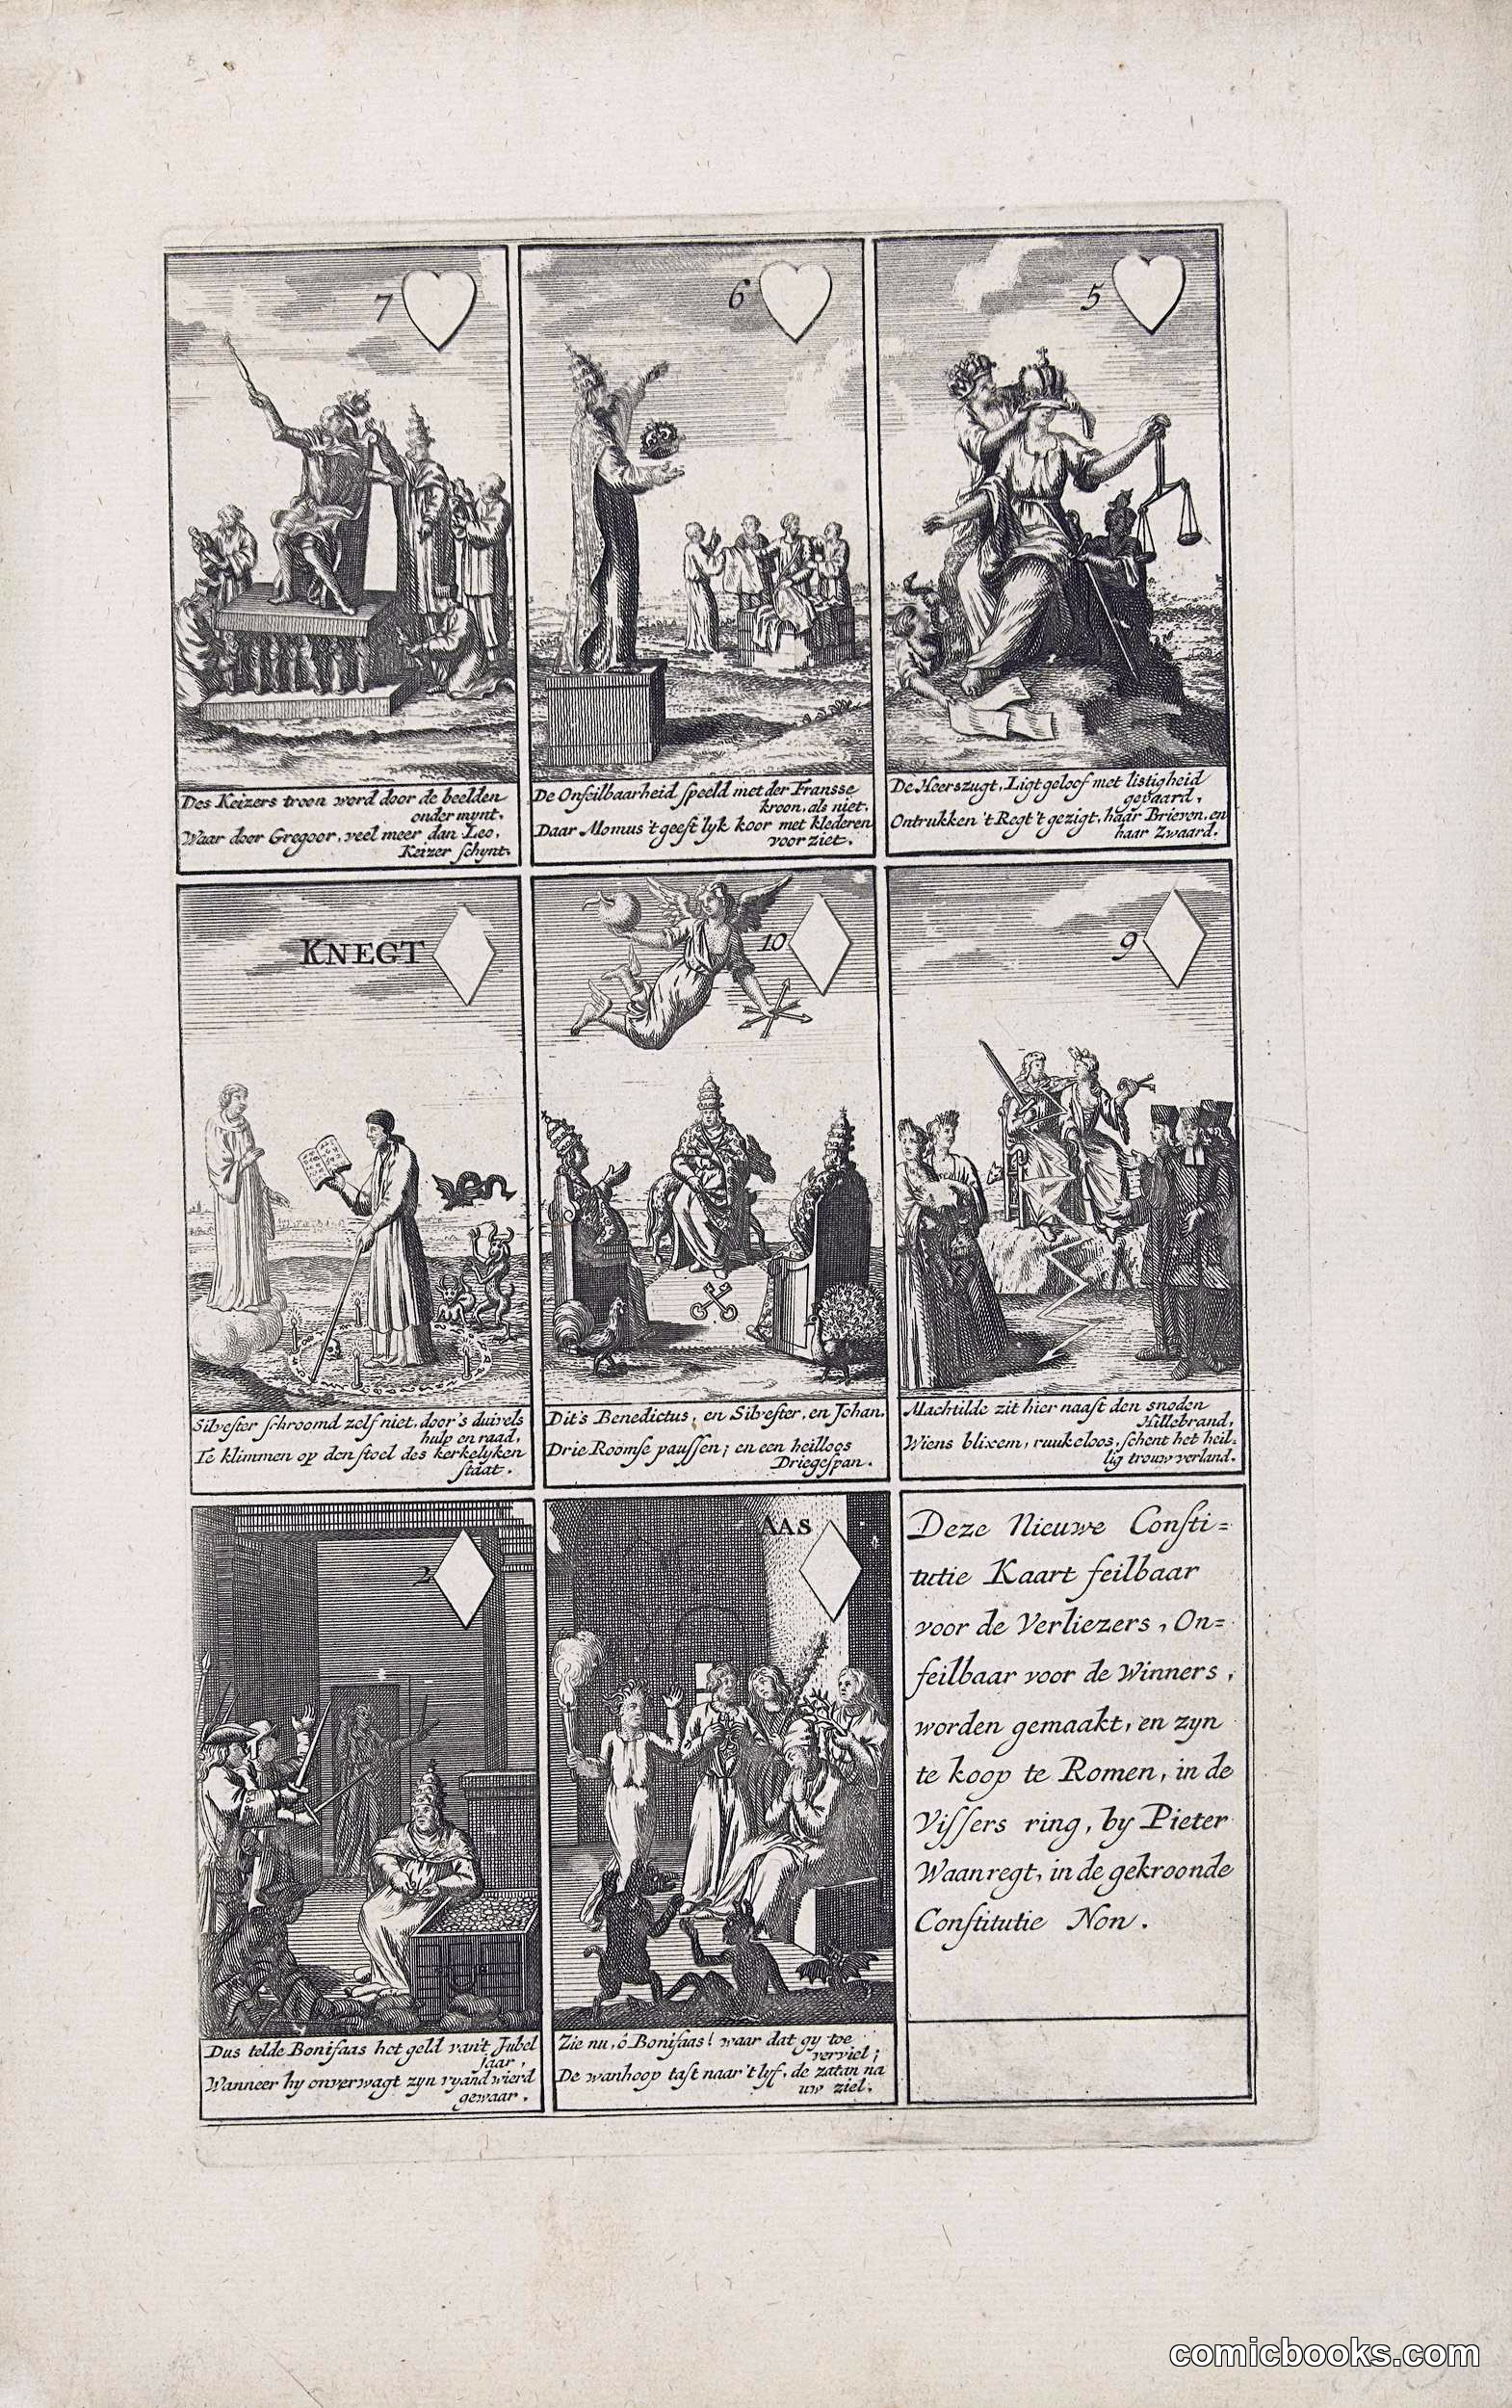 7
Des Keizers troon word door de beelden
ondermynt.
Waar door Gregoor, veel meer dan Leo,
Keizer schynt.
6
De Onfeilbaarheid speeld met der Fransse
kroon, als niet.
Daar Momus 't geest'lyk koor met klederen
voorziet.
5
De Heerszugt, Ligtgeloof met listigheid
gepaard,
Ontrukken 't Regt 't gezigt, haar Brieven, en
haar Zwaard.
KNEGT
Silvester schroomd zelf niet, door's duivels
hulp en raad,
Te klimmen op den stoel des kerkelyken
staat.
10
Dit's Benedictus, en Silvester, en Johan.
Drie Roomse paussen; en een heilloos
Driegespan.
9
Machtilde zit hier naast den snoden
Hillebrand,
Wiens blixem, ruukeloos, schent het heil-
lig trouwverland.
2
Dus telde Bonifaas het geld van't Jubel
jaar,
Wanneer hy onverwagt zyn vyand wierd
gewaar.
AAS
Zie nu, ô Bonifaas! waar dat gy toe
verviel;
De wanhoop tast naar 't lyf, de zatan na
uw ziel.
Deze Nieuwe Consti=
tutie Kaart feilbaar
voor de Verliezers, On=
feilbaar voor de Winners,
worden gemaakt, en zyn
te koop te Romen, in de
Vissers ring, by Pieter
Waanregt, in de gekroonde
Constitutie Non.
comicbooks.com